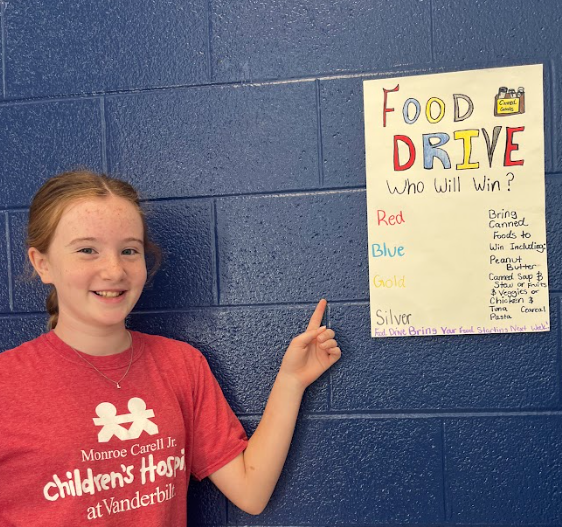 FOOD
Canned
Goods
DRIVE
Who Will Win?
Red
Blue
Gold
Silver
Bring
Canned
Foods to
Win Including:
Peanut
Butter
Canned Soup &
Stew or Fruits
& Veggies or
Chicken &
Tuna Cereal
Pasta
Food Drive Bring Your Food Starting Next Week!
Monroe Carell Jr.
children's Hospi
at Vanderbilt